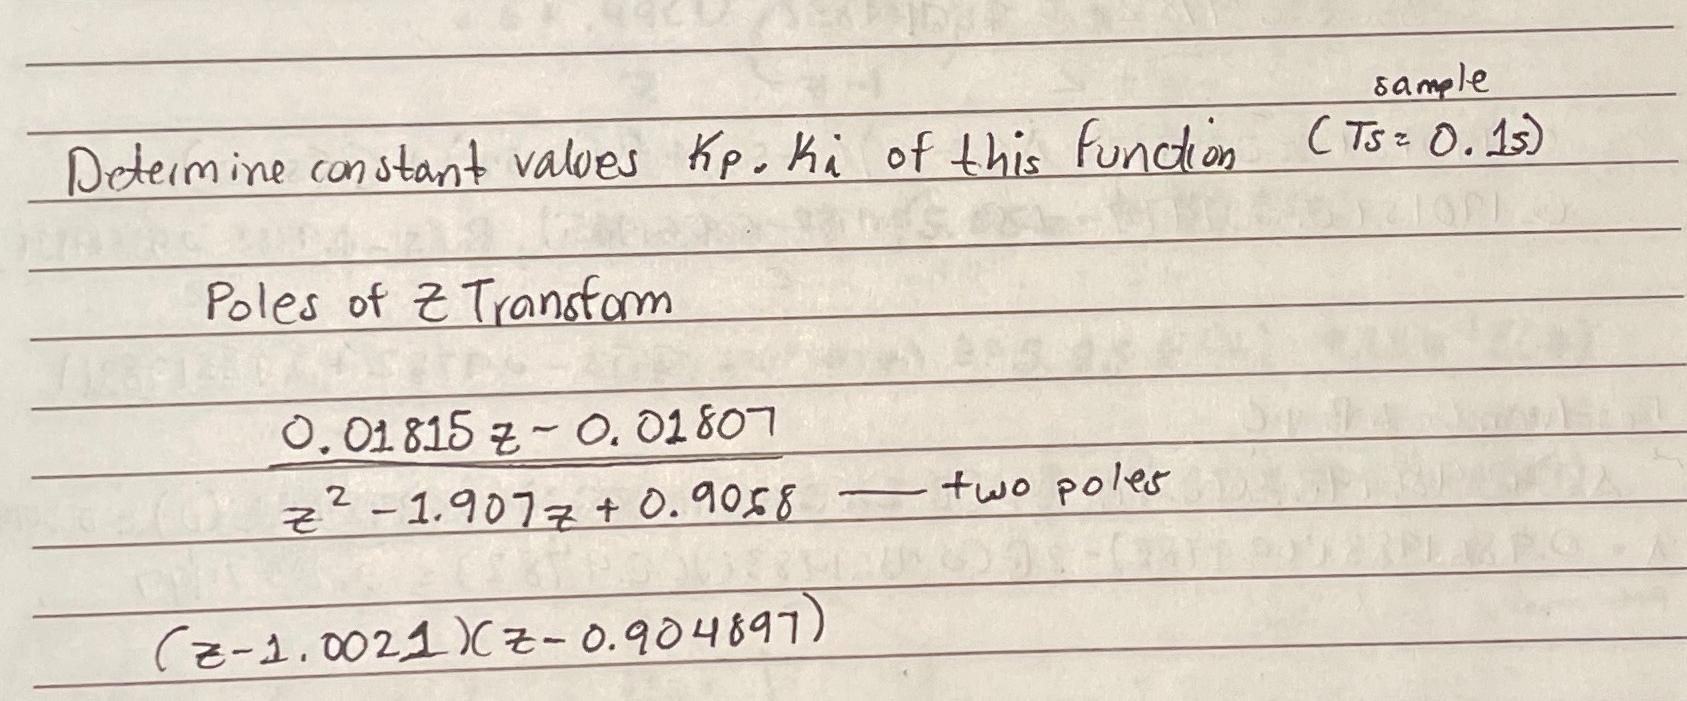 sample
Determine constant values Kp. Ki of this function (Ts = 0.1s)
Poles of Z Transform
0.01815 z - 0.01807
z² - 1.907z + 0.9058 — two poles
(z-1.0021)(z-0.904897)